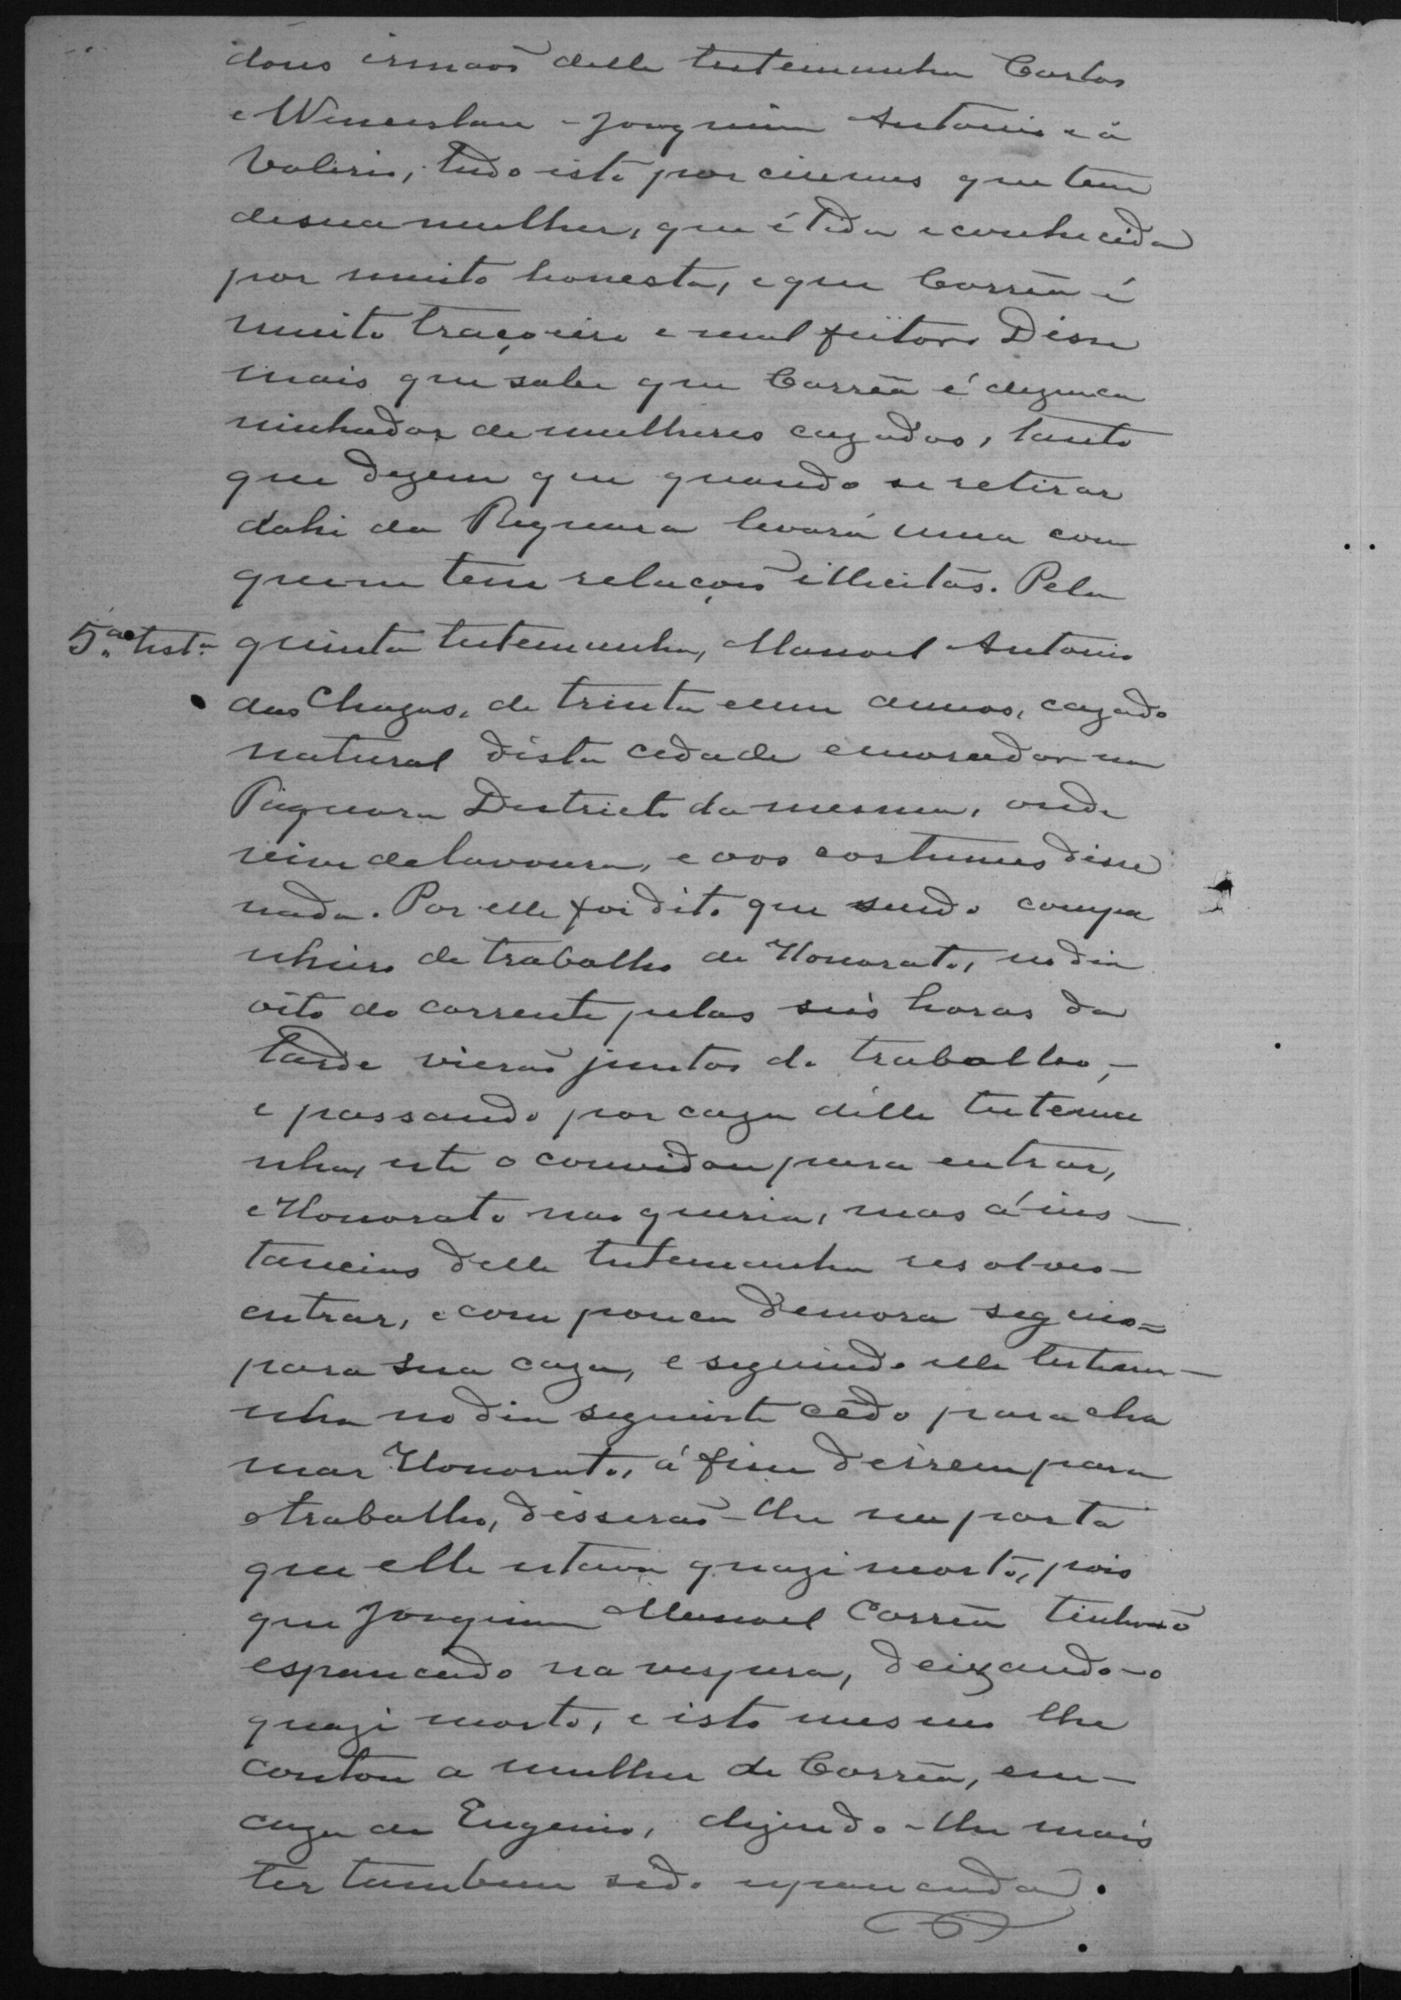 dous irmaõs delle testemunha Carlos
e Wincesláu – Joaquim Antonio e á
Valerio, tudo isto por ciumes que tem
de sua mulher, que é tida e conhecida
por muito honesta, e que Corrêa é
muito traçoeiro e mal feitor. Disse
mais que sabe que Corrêa é dezenca
minhador de mulheres cazadas, tanto
que dizem que quando se retirar
dahi da Piquara levará uma com
quem tem relaçoẽs illicitas. Pela
5.ª test.ª quinta testemunha, Manoel Antonio
das Chagas, de trinta e um annos, cazado
natural désta cidade e morador na
Piquara Districto da mesma, onde
vive de lavoura, e aos costumes disse
nada. Por elle foi dito que sendo compa
nheiro de trabalho de Honorato, no dia
oito do corrente pelas seis horas da
tarde vieraõ juntos do trabalho, –
e passando por caza délle testemu
nha, este o convidou para entrar,
e Honorato nao queria, mas á ins –
tancias delle testemunha resolveo –
entrar, e com pouca demora seguio =
para sua caza, e seguindo elle testemu –
nha no dia seguinte cêdo para cha
mar Honorato, á fim de irem para
o trabalho, disseraõ – lhe na porta
que elle estava quazi morto, pois
que Joaquim Manoel Corrêa tinha o
espancado na vespera, deixando – o
quazi morto, e isto mesmo lhe
contou a mulher de Corrêa, em –
caza de Eugenio, dizendo – lhe mais
ter tambem sido espancada.